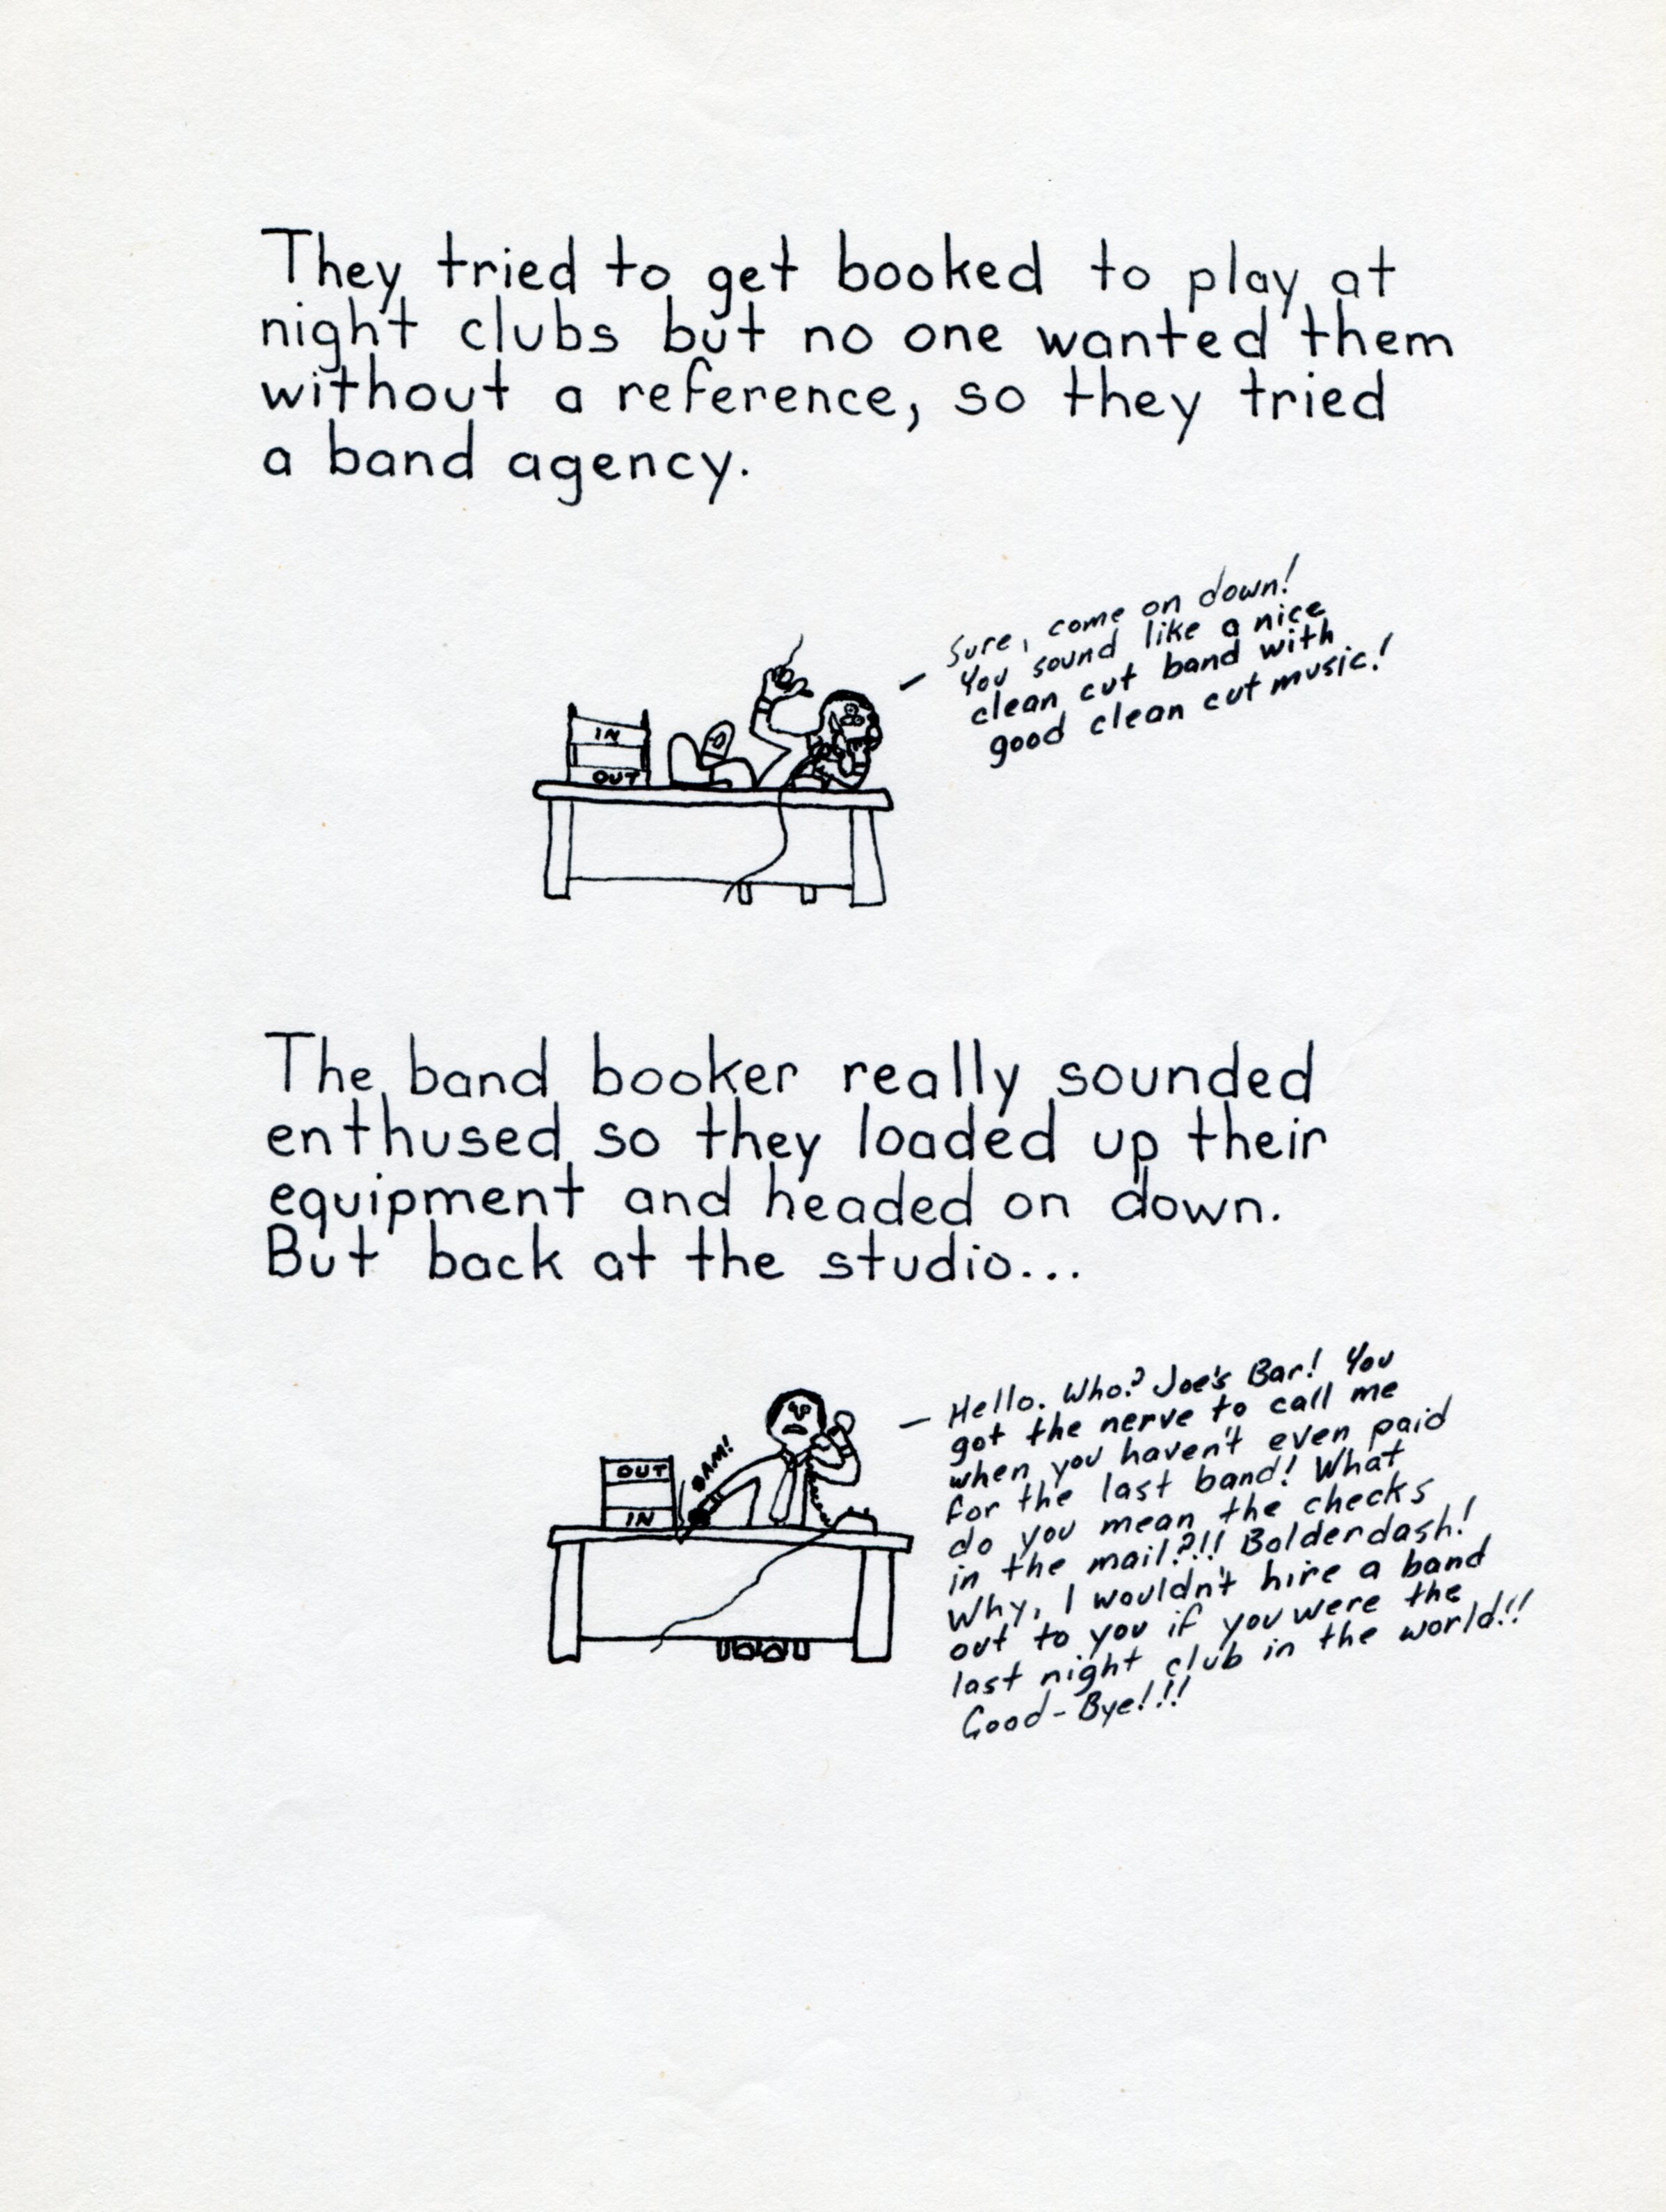 They tried to get booked to play at
night clubs but no one wanted them
without a reference, so they tried
a band agency.
Sure, come on down!
You sound like a nice
clean cut band with
good clean cut music!
IN
OUT
The band booker really sounded
enthused so they loaded up their
equipment and headed on down.
But back at the studio...
Hello. Who? Joe's Bar! You
got the nerve to call me
when you haven't even paid
for the last band! What
do you mean the checks
in the mail?!! Bolderdash!
Why, I wouldn't hire a band
out to you if you were the
last night club in the world!!
Good-Bye!!!
BAM!
OUT
IN